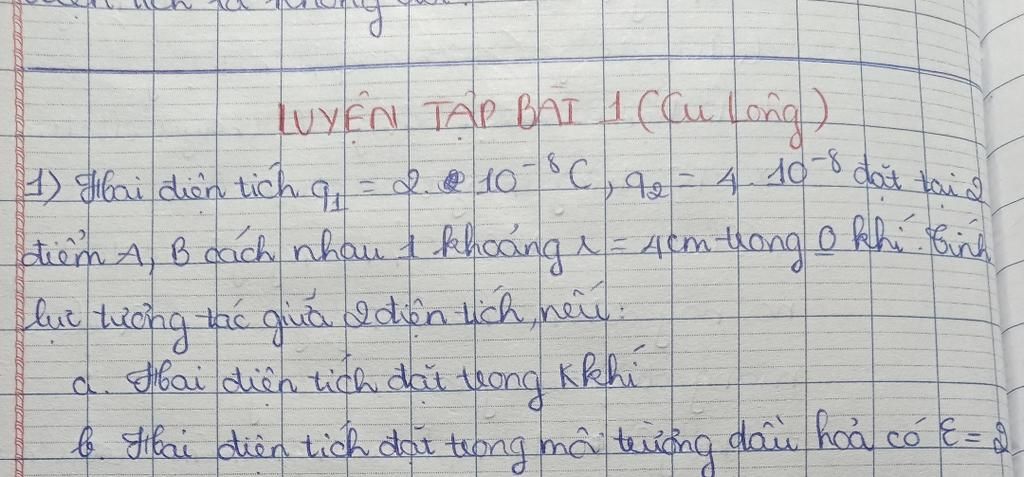 LUYỆN TẬP BÀI 1 (Cu Lông)
1) Hai điện tích q₁ = 2. 10⁻⁸C, q₂ = 4. 10⁻⁸ đặt tại 2
điểm A, B cách nhau 1 khoảng r = 4cm trong 0 khí. Tính
lực tương tác giữa 2 điện tích, nếu:
a. Hai điện tích đặt trong Kkhí
b. Hai điện tích đặt trong môi trường dầu hoả có ε = 2